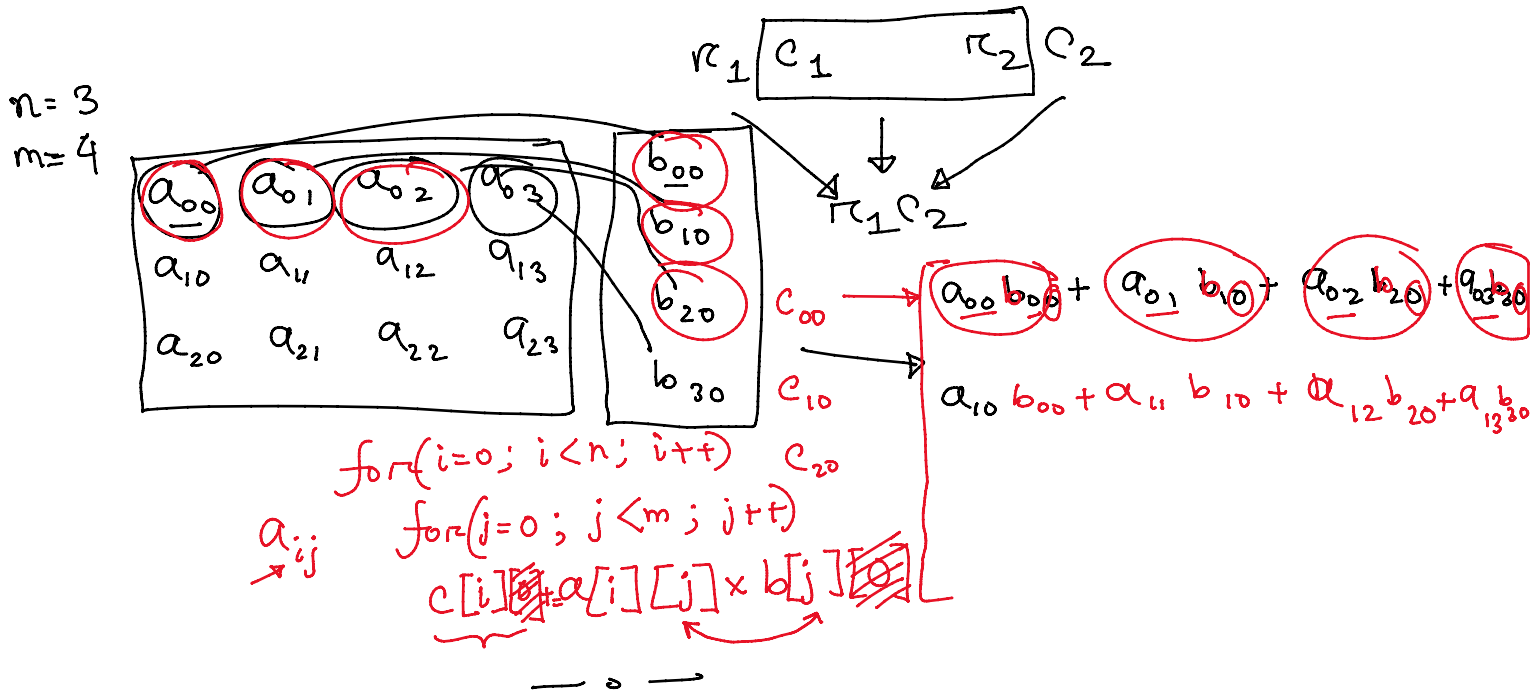 r₁ c₁ r₂ c₂
n = 3
m = 4
r₁c₂
a₀₀ a₀₁ a₀₂ a₀₃
a₁₀ a₁₁ a₁₂ a₁₃
a₂₀ a₂₁ a₂₂ a₂₃
b₀₀
b₁₀
b₂₀
b₃₀
c₀₀
c₁₀
c₂₀
a₀₀ b₀₀ + a₀₁ b₁₀ + a₀₂ b₂₀ + a₀₃ b₃₀
a₁₀ b₀₀ + a₁₁ b₁₀ + a₁₂ b₂₀ + a₁₃ b₃₀
for(i=0; i<n; i++)
for(j=0; j<m; j++)
aᵢⱼ
c[i][0] += a[i][j] × b[j][0]